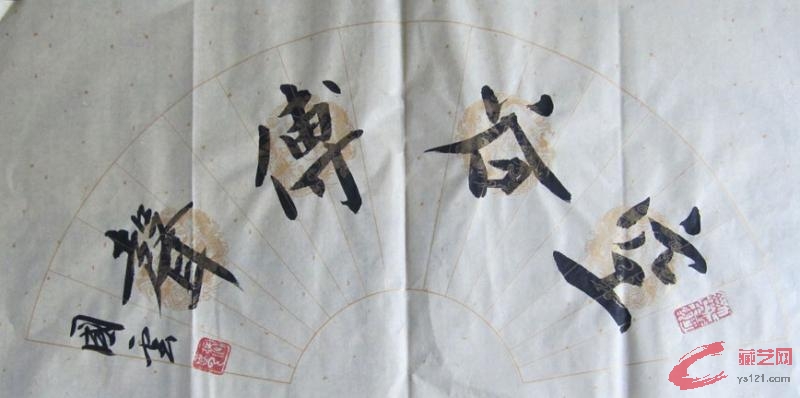 空谷傳聲
國雲
藏艺网
ys121.com